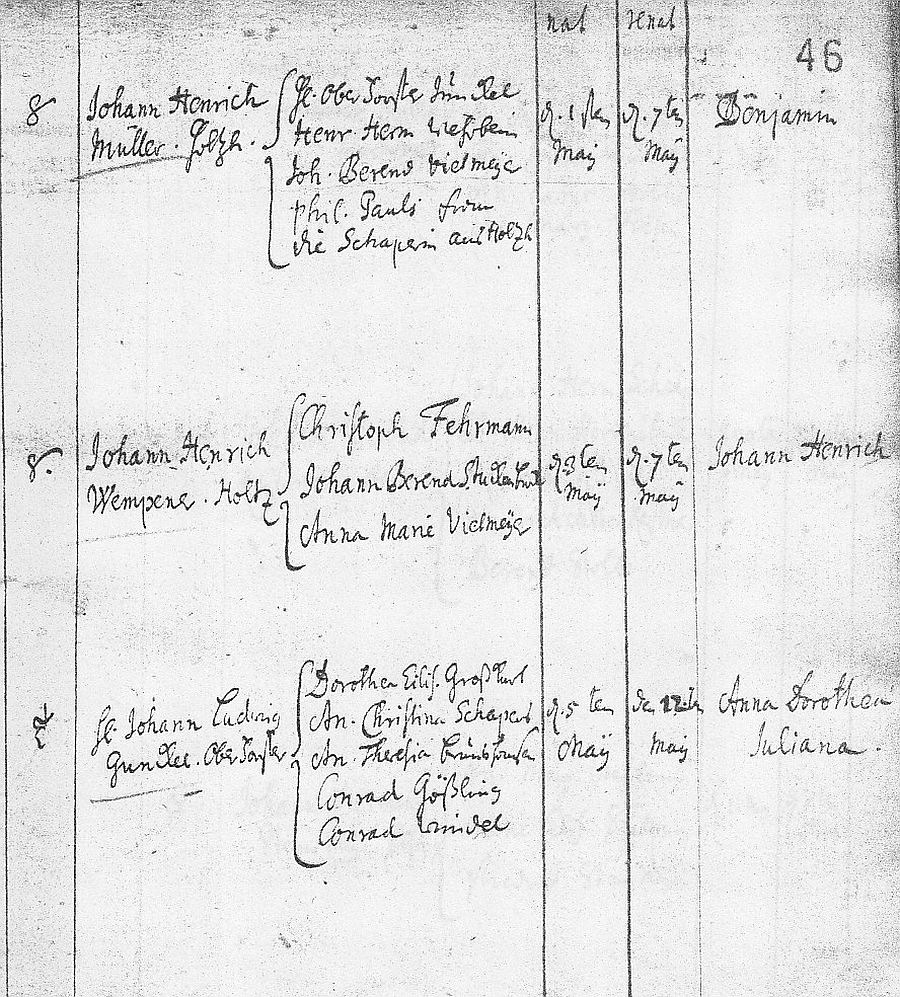 nat renat
46
8 Johann Henrich
Müller. Holzh.
H. Ober Förster Gundel
Henr. Herm
Joh. Berend Vielmeÿe
Phil. Pauls frau
die Schaperin aus Holzh
d. 1 sten
Maÿ
d. 7 ten
Maÿ
Benjamin
8. Johann Henrich
Wempener. Holtz
Christoph Fehrmann
Johann Berend
Anna Marie Vielmeÿe
d. 3 ten
Maÿ
d. 7 ten
Maÿ
Johann Henrich
H. Johann Ludwig
Gundel. Ober Förster
Dorothea Elis.
An. Christina Schapers
An. Theresia
Conrad Gößling
Conrad
d. 5 ten
Maÿ
den 12. ten
Maÿ
Anna Dorothea
Juliana.